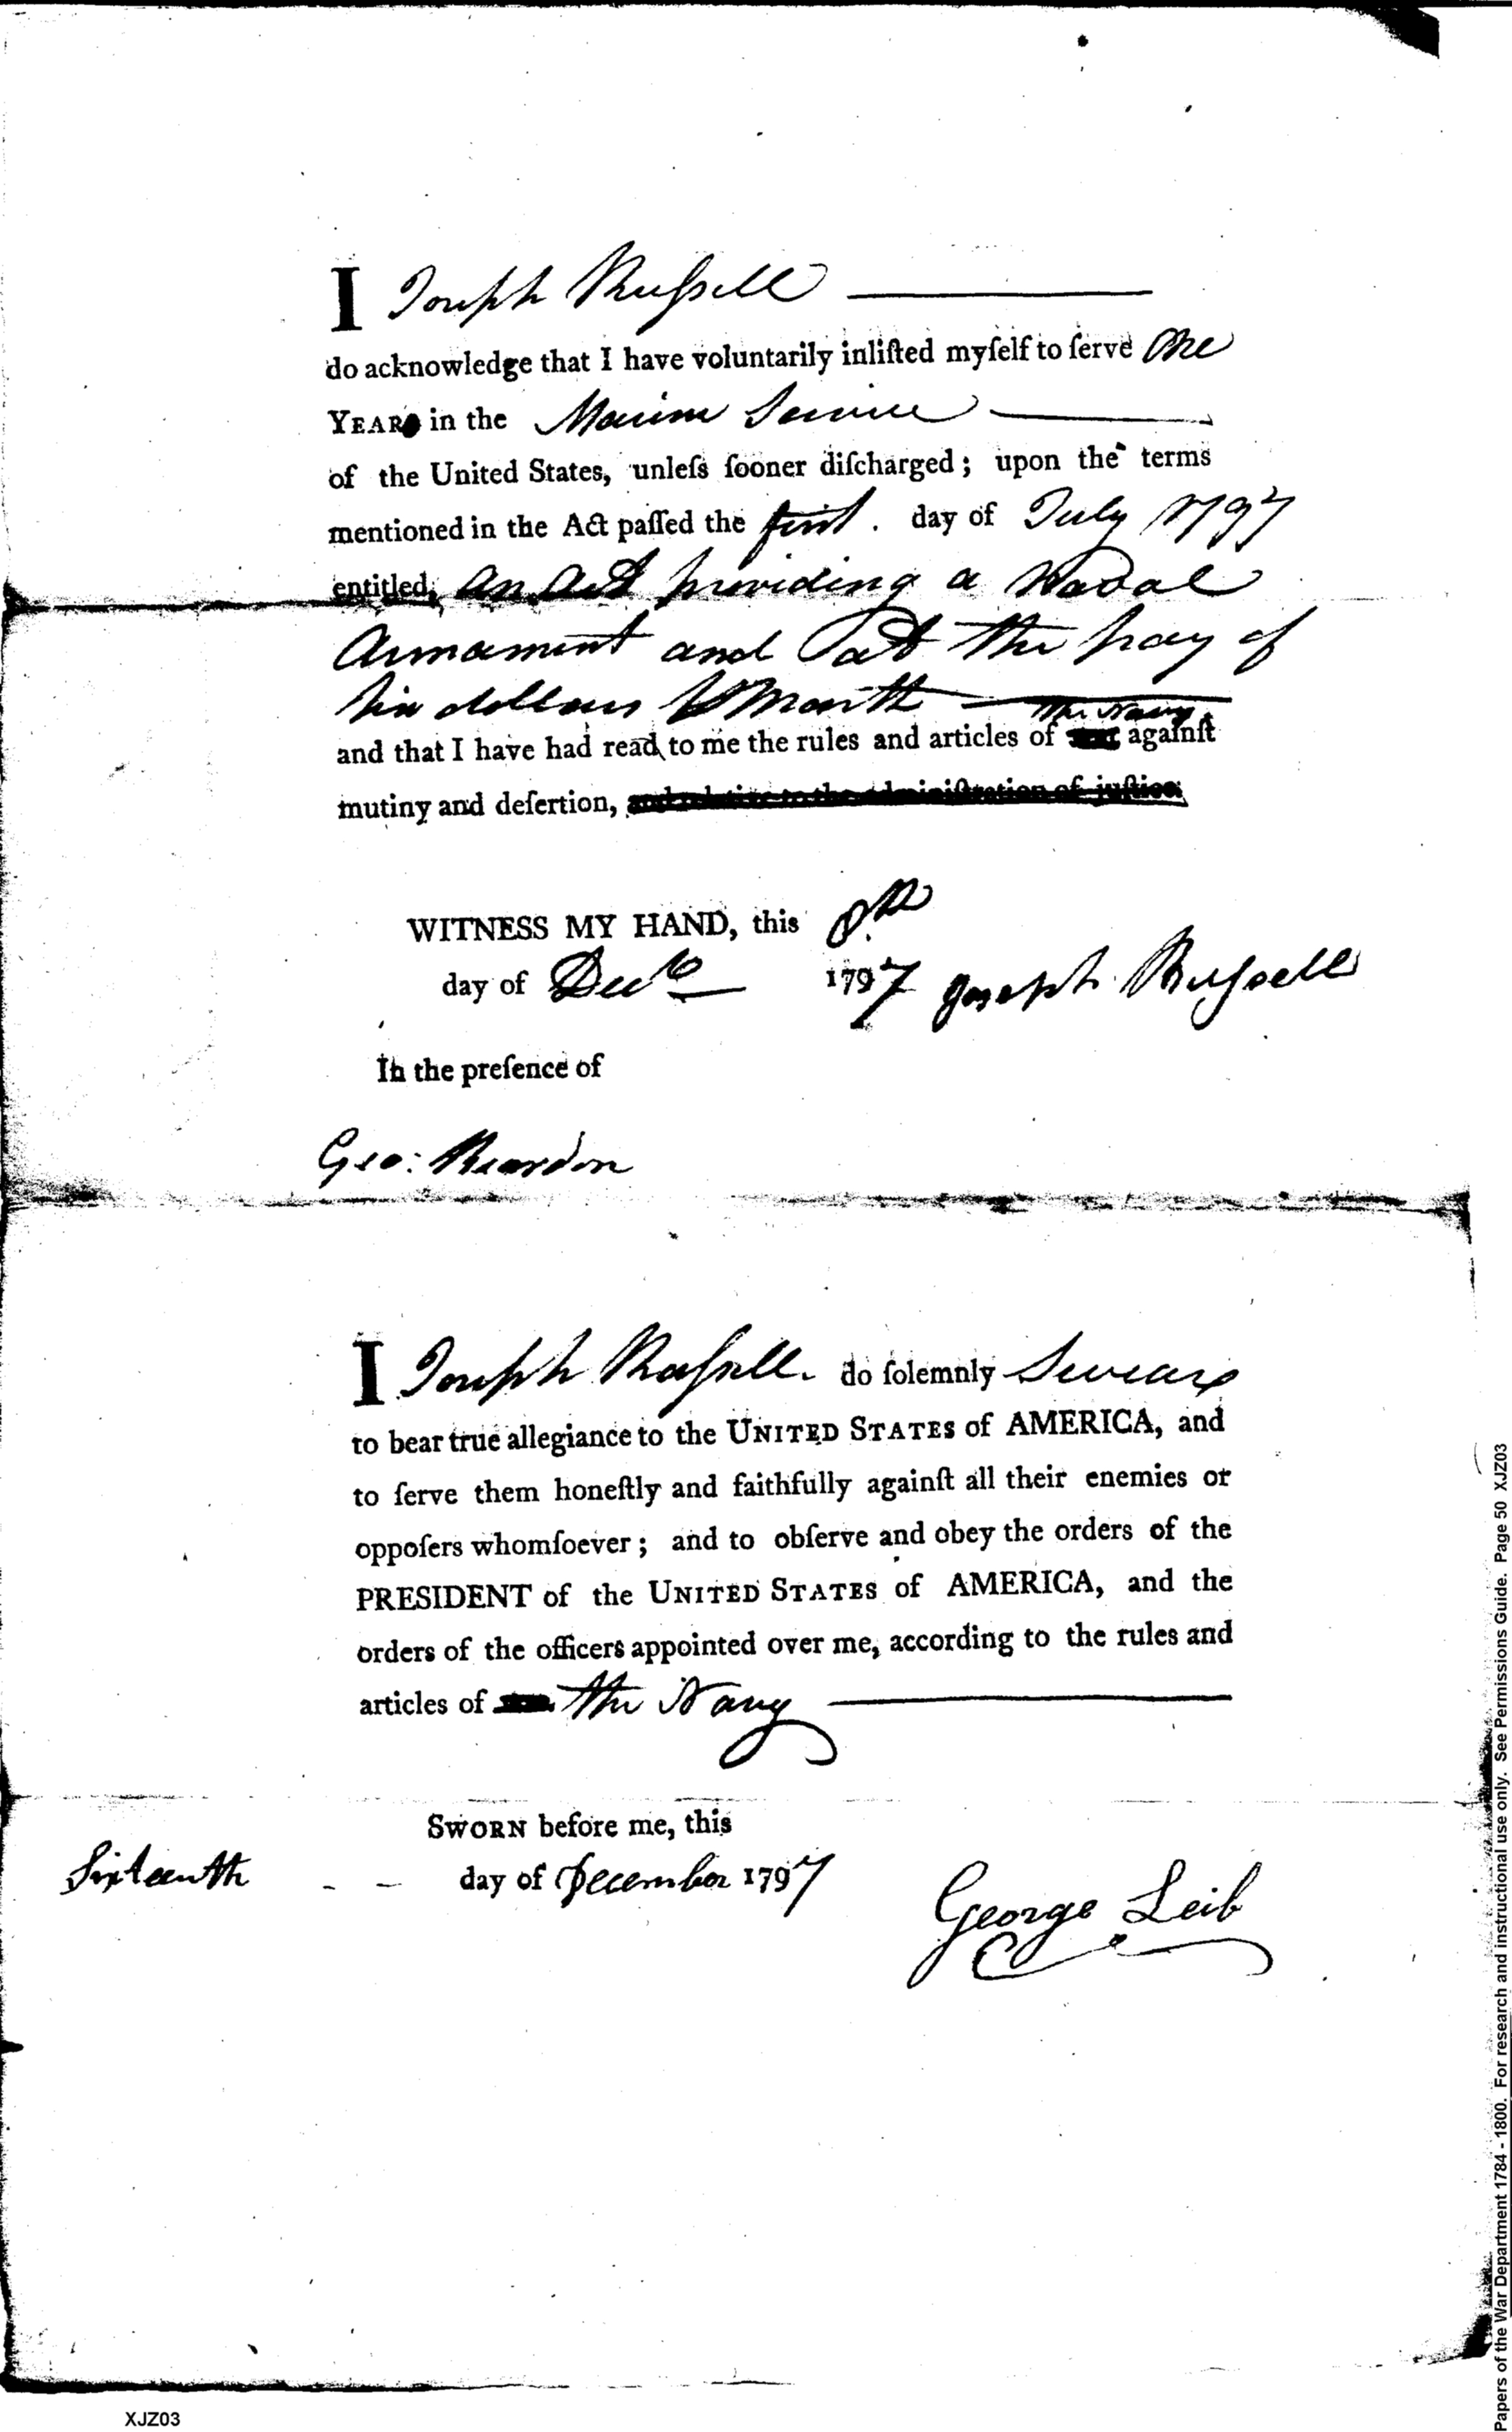 I Joseph Russell
do acknowledge that I have voluntarily inliſted myſelf to ſerve One
YEAR in the Marine Service
of the United States, unleſs ſooner diſcharged; upon the terms
mentioned in the Act paſſed the first . day of July 1797
entitled, An Act providing a Naval
Armament and at the pay of
Six dollars Month
the Navy
and that I have had read to me the rules and articles of againſt
mutiny and deſertion, and relative to the adminiſtration of juſtice.
WITNESS MY HAND, this 8th
day of Decr 1797 Joseph Russell
In the preſence of
Geo: Reardon
I Joseph Russell. do ſolemnly Swear
to bear true allegiance to the UNITED STATES of AMERICA, and
to ſerve them honeſtly and faithfully againſt all their enemies or
oppoſers whomſoever; and to obſerve and obey the orders of the
PRESIDENT of the UNITED STATES of AMERICA, and the
orders of the officers appointed over me, according to the rules and
articles of the Navy
SWORN before me, this
Sixteenth - - day of December 1797
George Leib
XJZ03
Papers of the War Department 1784 - 1800. For research and instructional use only. See Permissions Guide. Page 50 XJZ03